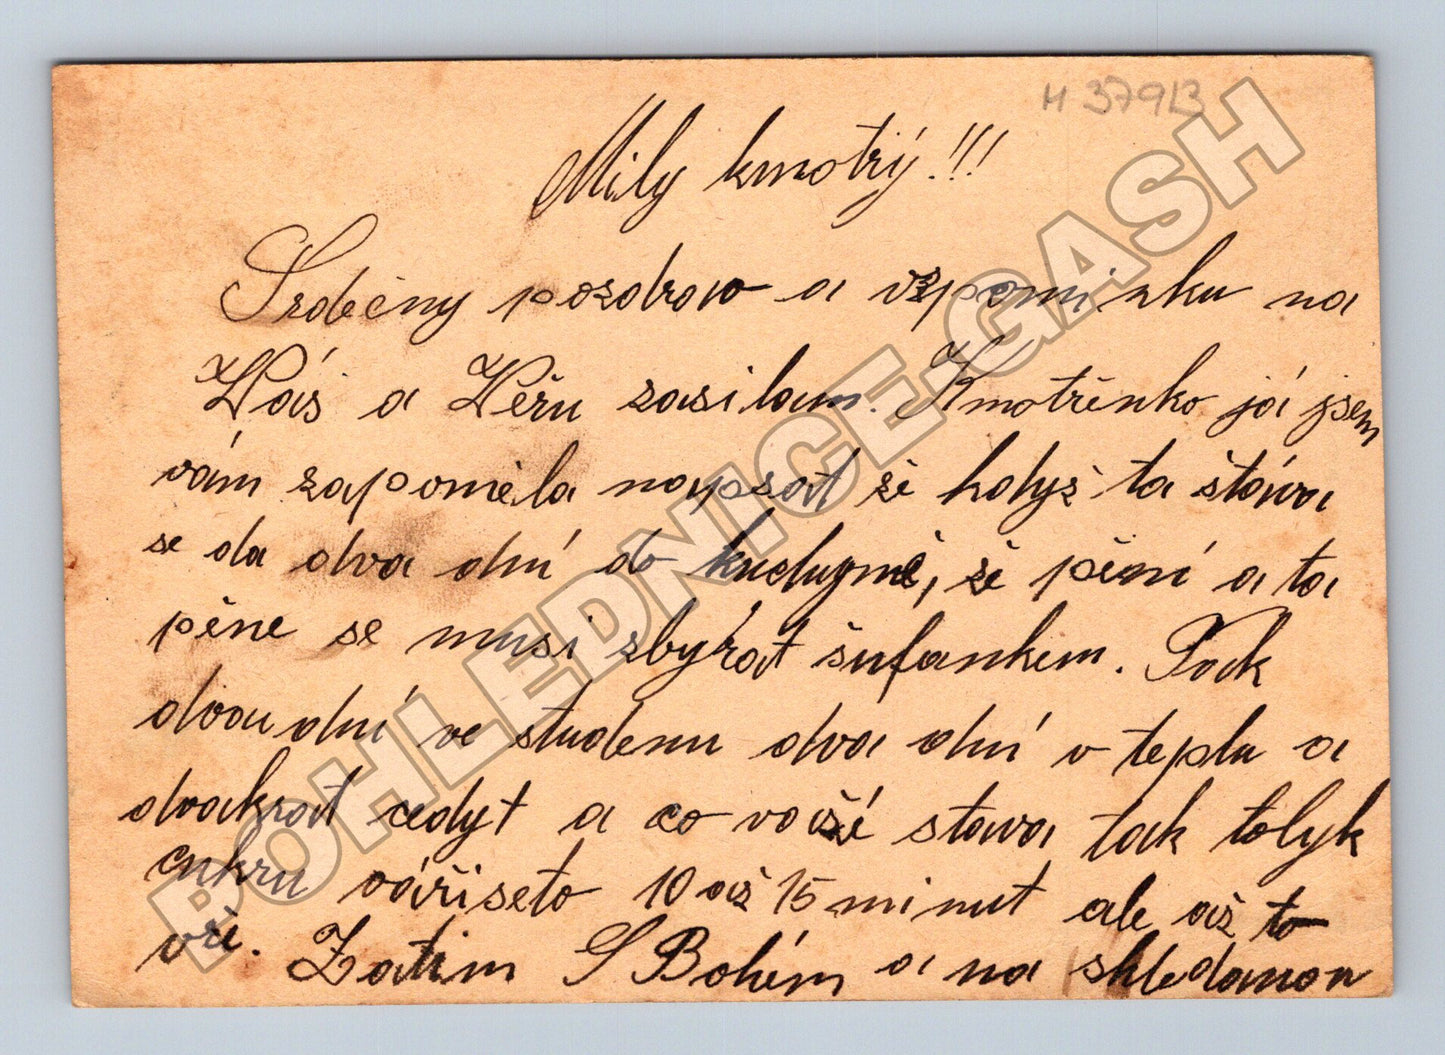 H 37913
Milý kmotrý.!!!
Srděčny pozdrav a vzpomínku na
Vás a Věru zasilam. Kmotřenko já jsem
vám zapoměla napsat že hdyž ta štáva
se da dva dní do kuchyně, že pění a ta
pěne se musi zbýrat šufankem. Pak
dvau dní ve studenu dva dní v teplu a
dvakrat cedyt a co vaiší stava tak tolyk
cukru váří se to 10 až 15 minut ale až to
vře. Zatim S Bohém a na shledanou
POHLEDNICE.GASH